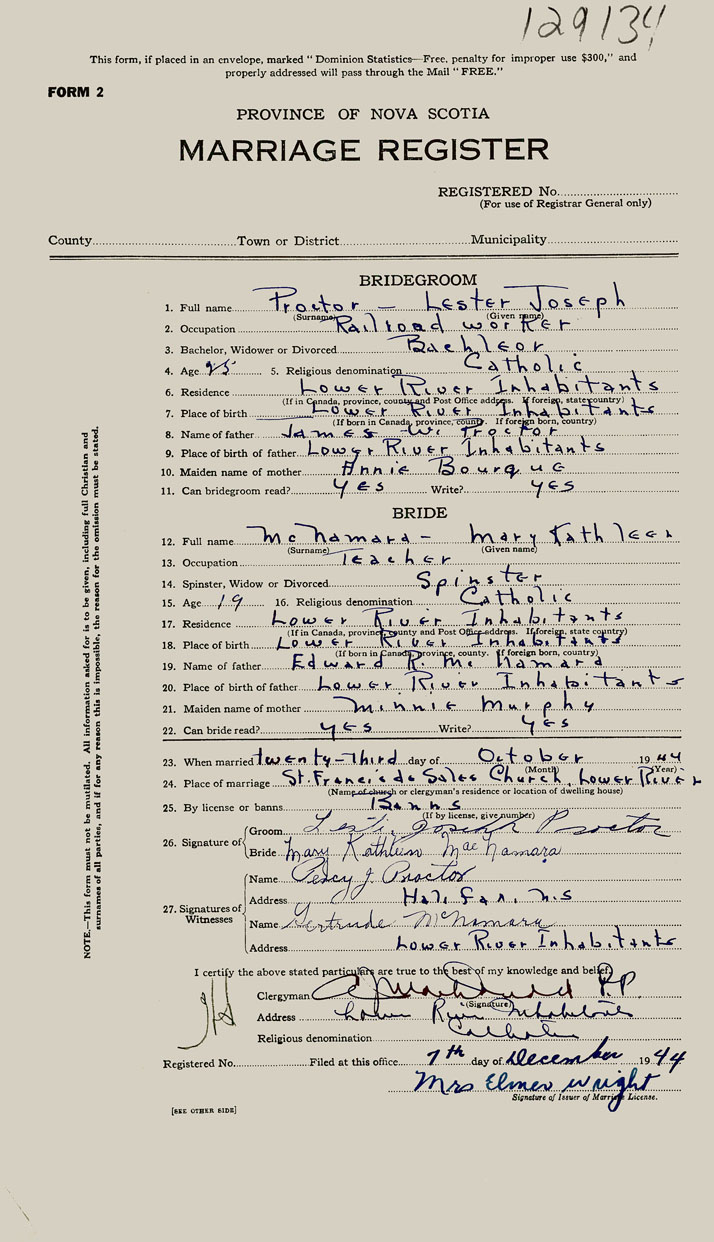 129134
This form, if placed in an envelope, marked "Dominion Statistics—Free, penalty for improper use $300," and
properly addressed will pass through the Mail "FREE."
FORM 2
PROVINCE OF NOVA SCOTIA
MARRIAGE REGISTER
REGISTERED No.
(For use of Registrar General only)
County Town or District Municipality
BRIDEGROOM
1. Full name Proctor — Lester Joseph
(Surname) (Given name)
2. Occupation Railroad worker
3. Bachelor, Widower or Divorced Bachleor
4. Age 5. Religious denomination Catholic
6. Residence Lower River Inhabitants
(If in Canada, province, county and Post Office address. If foreign, state country)
7. Place of birth Lower River Inhabitants
(If born in Canada, province, county. If foreign born, country)
8. Name of father James W. Proctor
9. Place of birth of father Lower River Inhabitants
10. Maiden name of mother Annie Bourque
11. Can bridegroom read? yes Write? yes
BRIDE
12. Full name McNamara — Mary Kathleen
(Surname) (Given name)
13. Occupation Teacher
14. Spinster, Widow or Divorced Spinster
15. Age 19 16. Religious denomination Catholic
17. Residence Lower River Inhabitants
(If in Canada, province, county and Post Office address. If foreign, state country)
18. Place of birth Lower River Inhabitants
(If born in Canada, province, county. If foreign born, country)
19. Name of father Edward R. McNamara
20. Place of birth of father Lower River Inhabitants
21. Maiden name of mother Minnie Murphy
22. Can bride read? yes Write? yes
23. When married twenty-Third day of October 1944
(Month) (Year)
24. Place of marriage St. Francis de Sales Church, Lower River
(Name of church or clergyman's residence or location of dwelling house)
25. By license or banns Banns
(If by license, give number)
26. Signature of
Groom Lester Joseph Proctor
Bride Mary Kathleen MacNamara
27. Signatures of Witnesses
Name Percy J. Proctor
Address Halifax, N.S
Name Gertrude McNamara
Address Lower River Inhabitants
I certify the above stated particulars are true to the best of my knowledge and belief.
Clergyman P.P.
(Signature)
Address Lower River Inhabitants
Religious denomination Catholic
Registered No. Filed at this office 7th day of December 1944
Mrs Elmer Wright
Signature of Issuer of Marriage License.
[SEE OTHER SIDE]
NOTE.—This form must not be mutilated. All information asked for is to be given, including full Christian and
surnames of all parties, and if for any reason this is impossible, the reason for the omission must be stated.